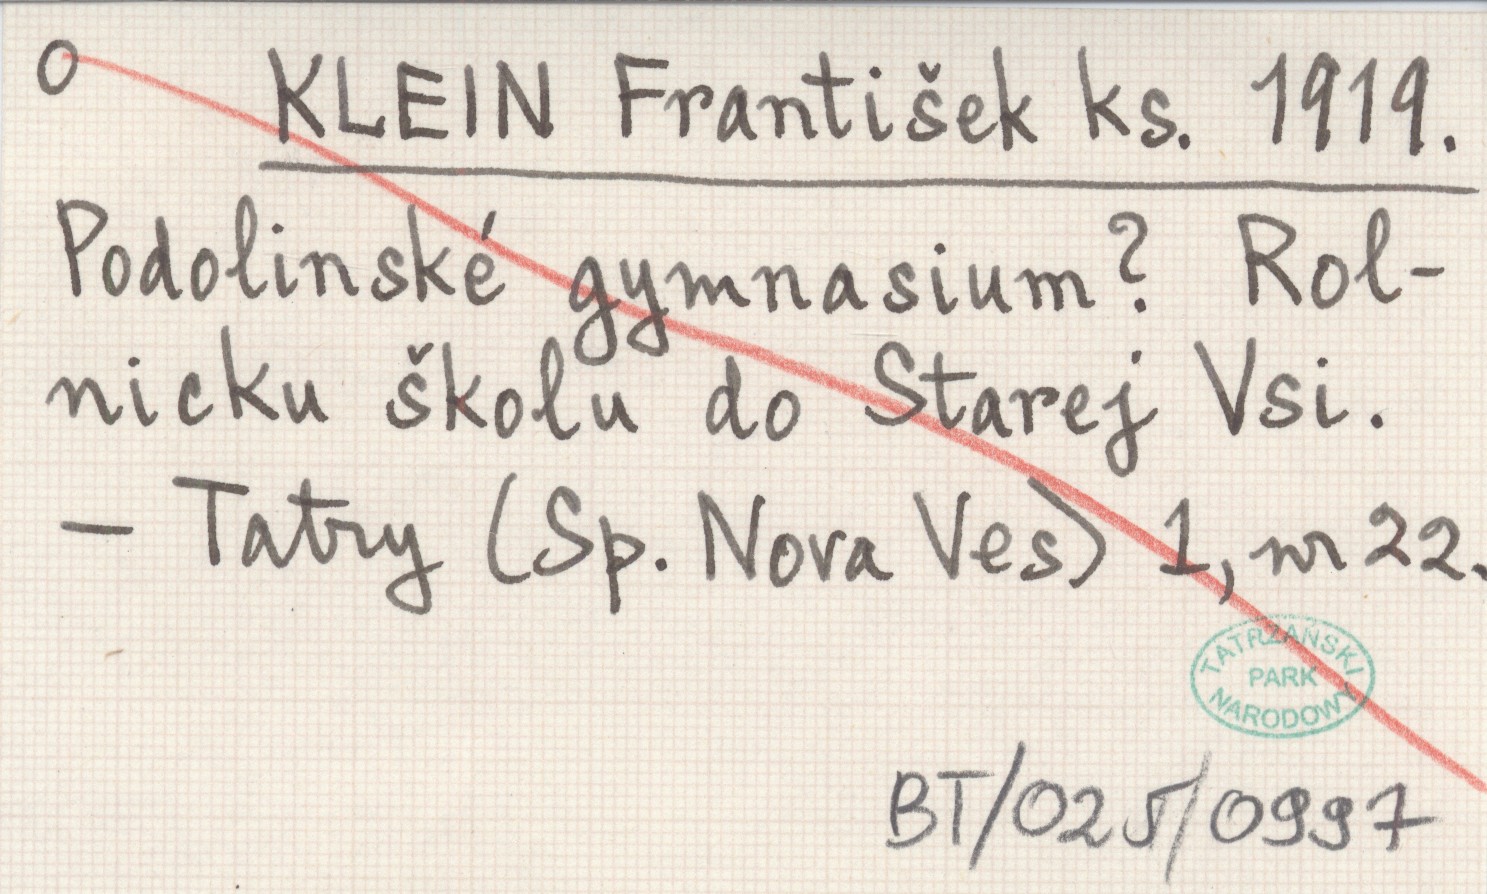 O KLEIN František ks. 1919.
Podolinské gymnasium? Rol-
nicku školu do Starej Vsi.
— Tatry (Sp. Nova Ves) 1, nr 22.
TATRZAŃSKI
PARK
NARODOWY
BT/025/0997